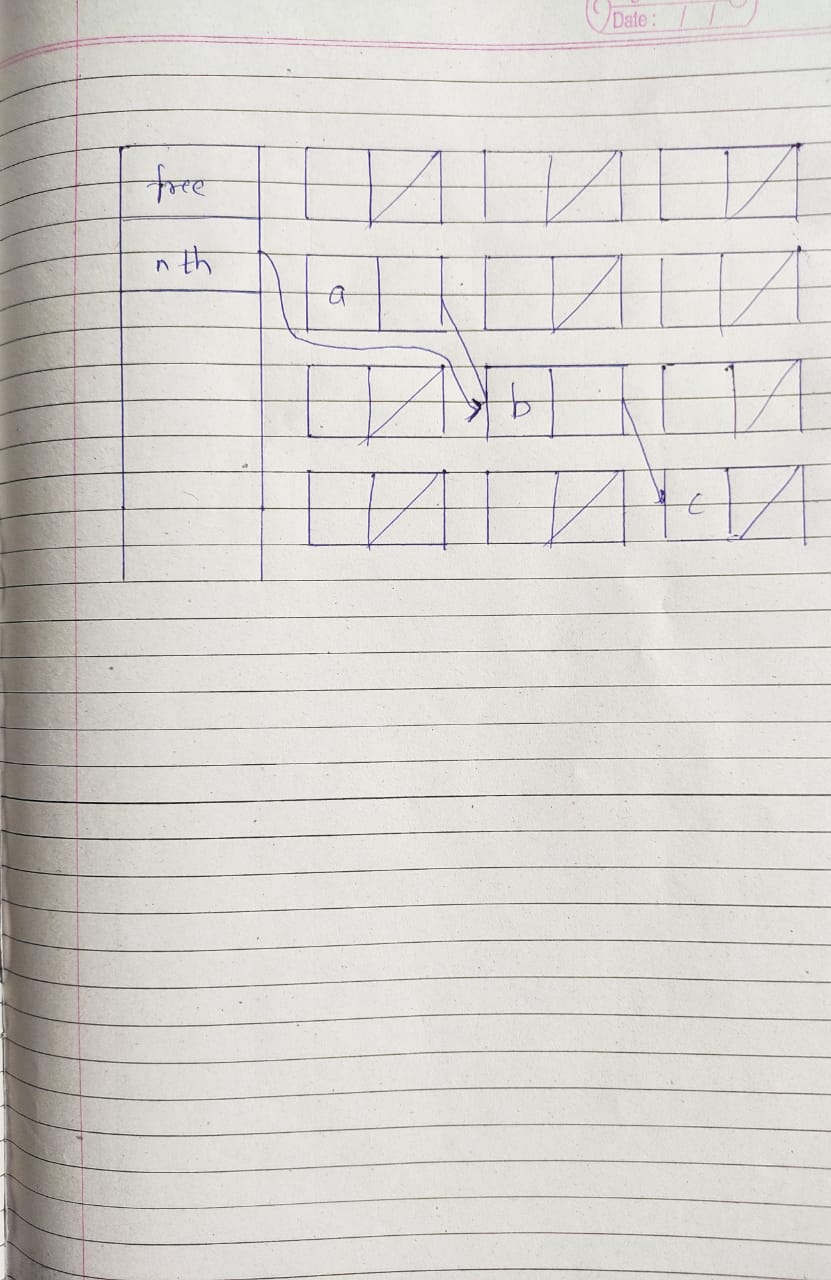 Date : / /
free
nth
a
b
c